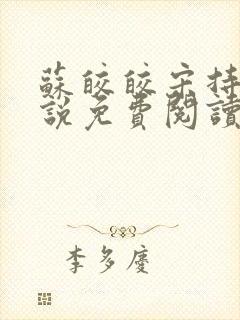 蘇皎皎宋持
說免費閱讀
李多慶